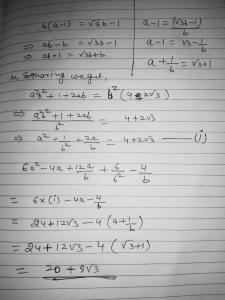 b(a-1) = √3b-1
a-1 = (√3b-1)/b
⇒ ab-b = √3b-1
a-1 = √3-1/b
⇒ ab+1 = √3b+b
a+1/b = √3+1
Squaring we get,
a²b²+1+2ab = b²(4+2√3)
⇒ (a²b²+1+2ab)/b² = 4+2√3
⇒ a²+1/b²+2a/b = 4+2√3 —(i)
6a²-4a+12a/b+6/b²-4/b
= 6×(i)-4a-4/b
= 24+12√3-4(a+1/b)
= 24+12√3-4(√3+1)
= 20+8√3